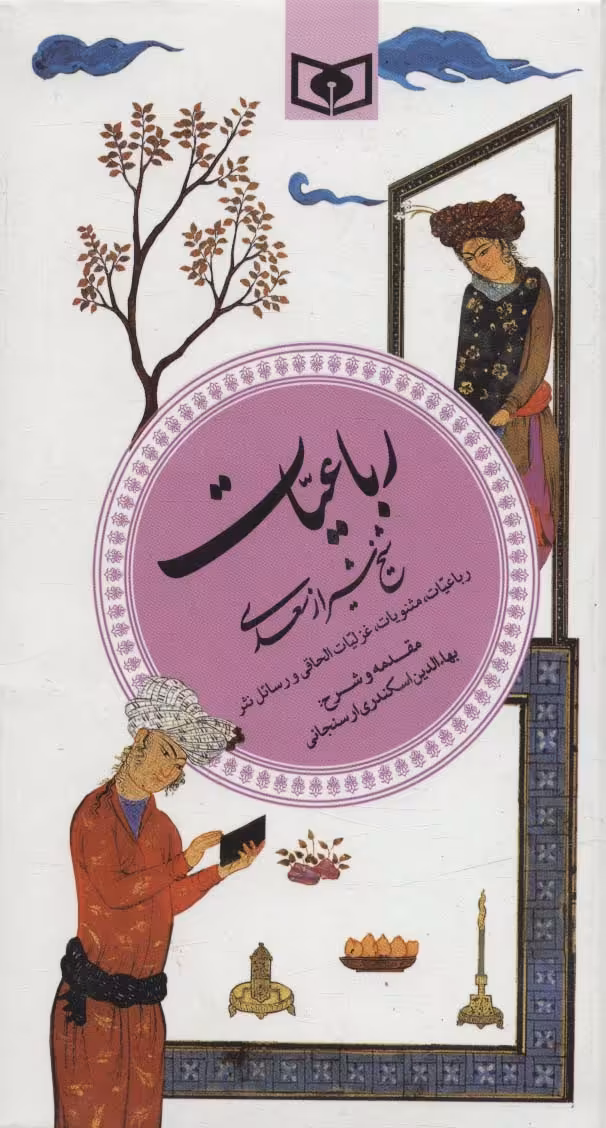 رباعیّات
شیخ شیراز سعدی
رباعیّات، مثنویات، غزلیّات الحاقی و رسائل نثر
مقدمه و شرح:
بهاءالدین اسکندری ارسنجانی